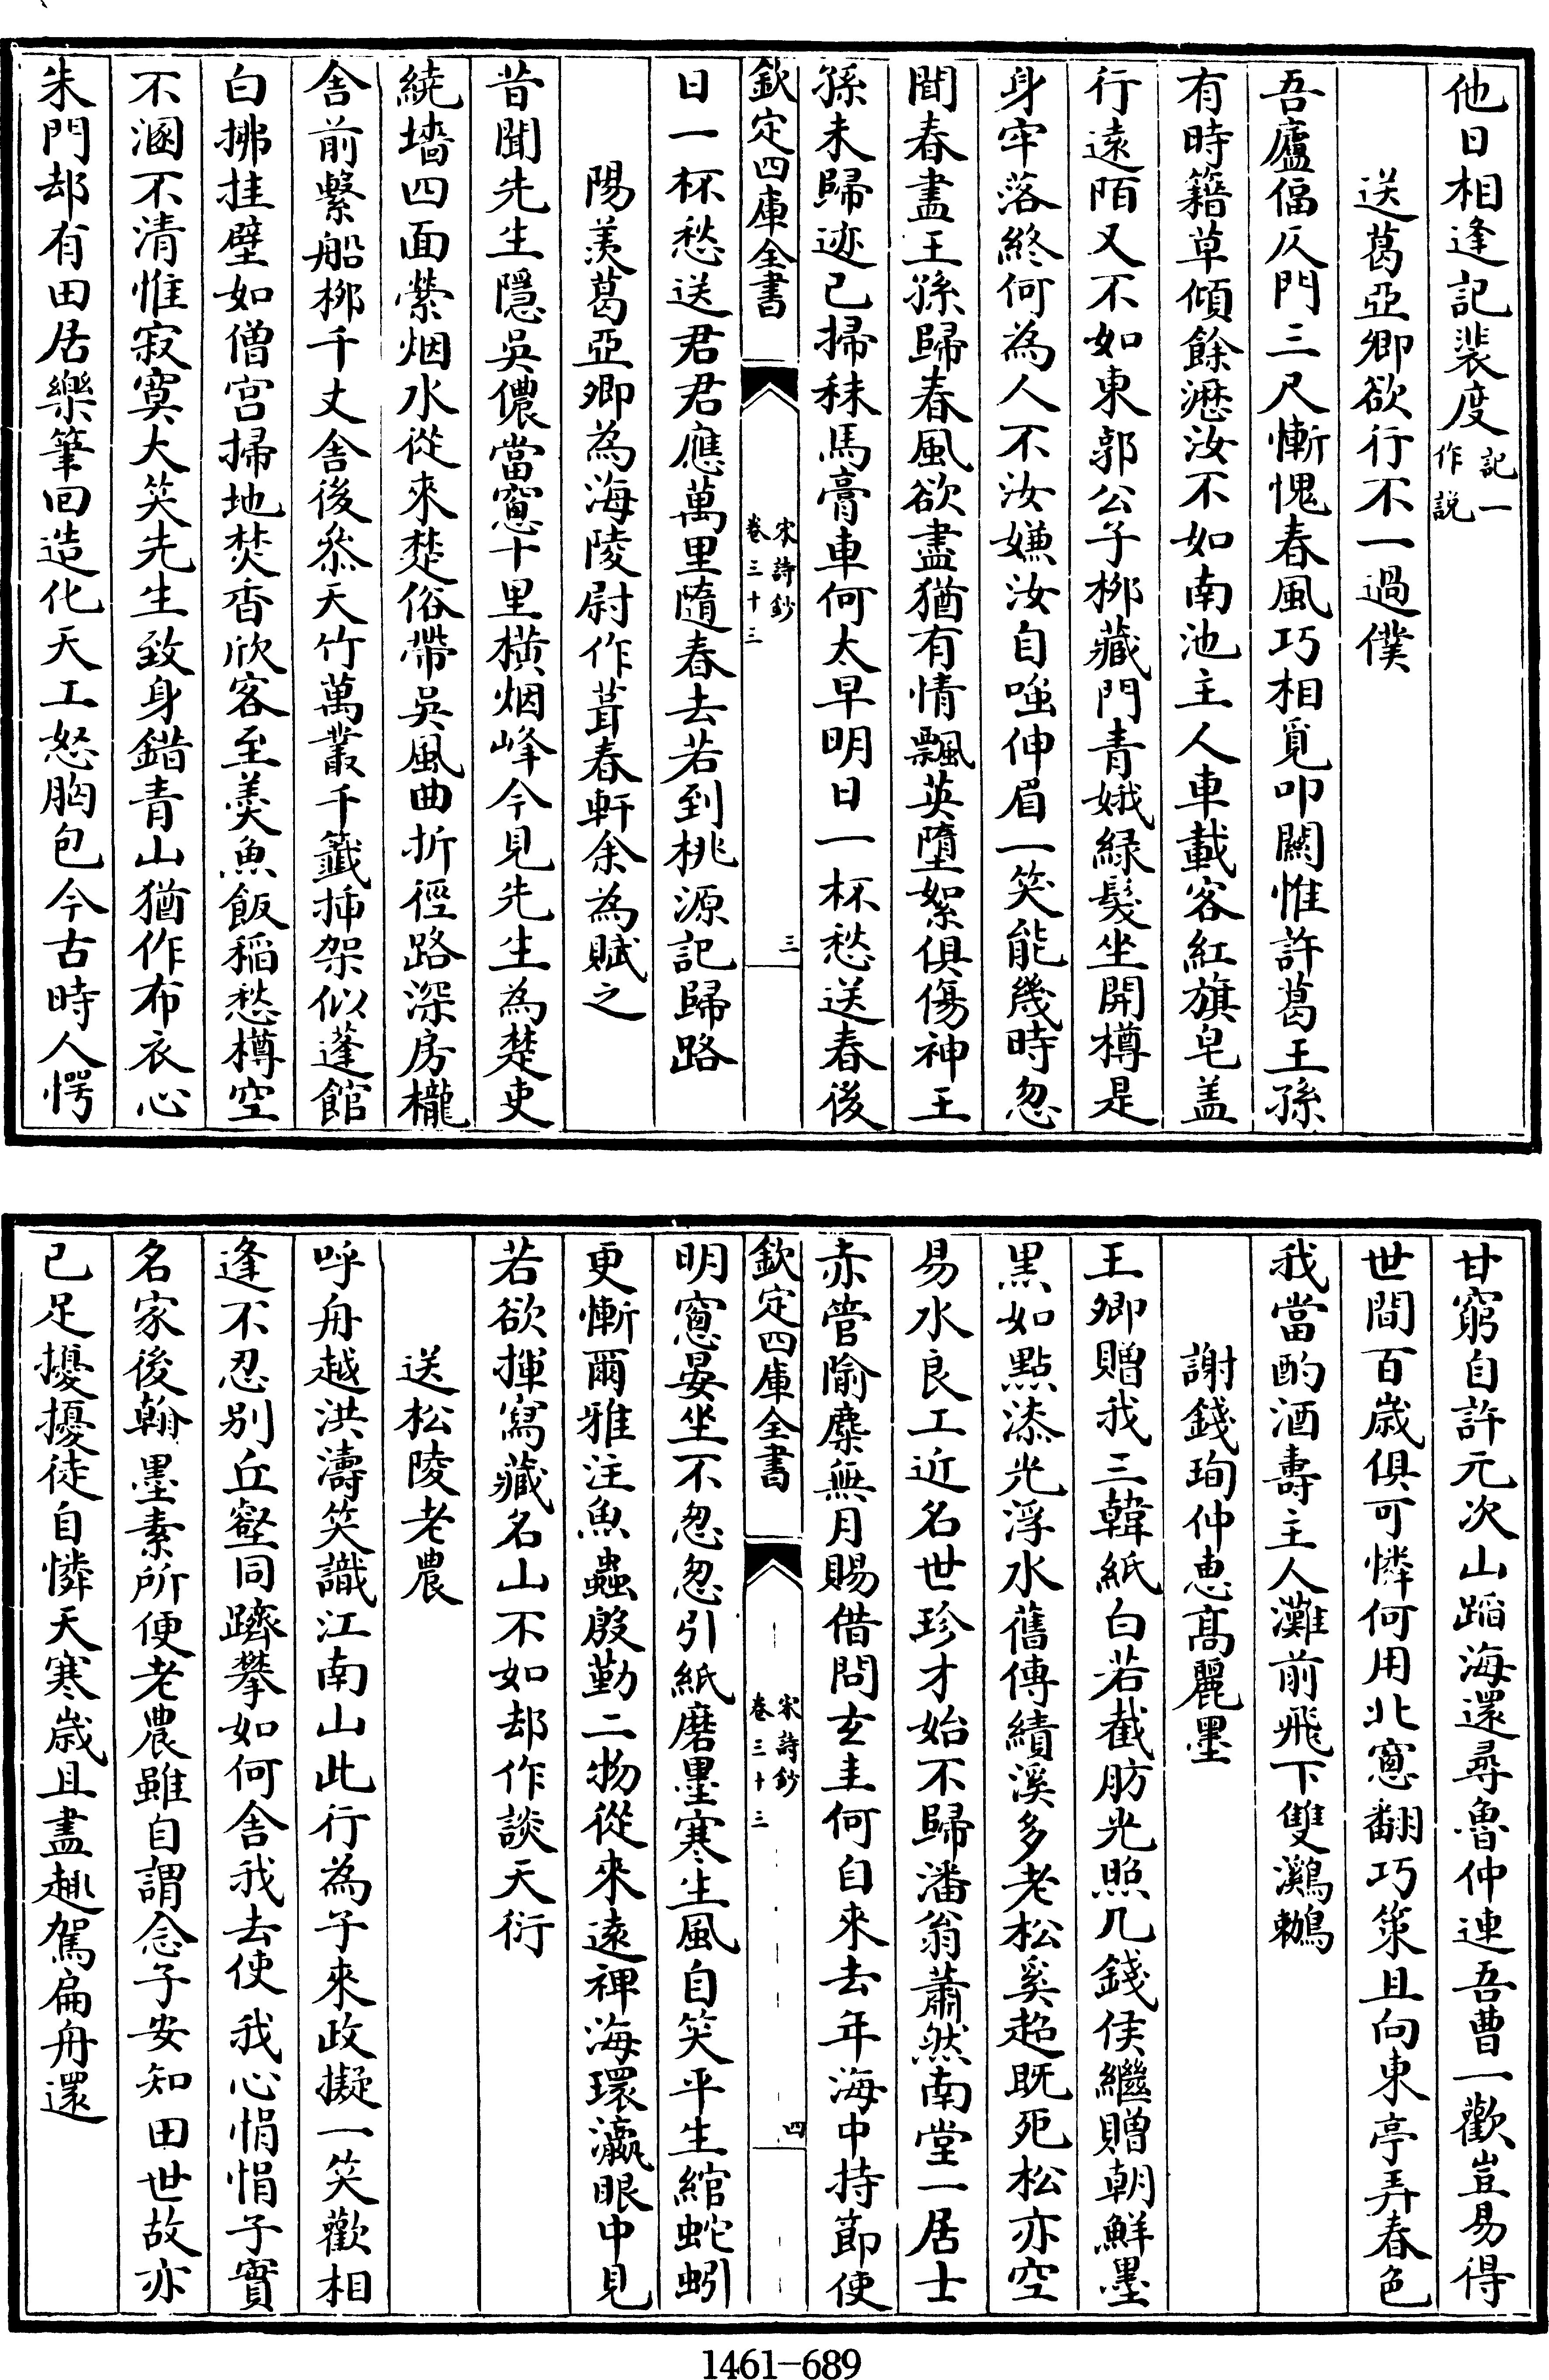 他日相逢記裴度記一作說
送葛亞卿欲行不一過僕
吾廬傴仄門三尺慚愧春風巧相覓叩闗惟許葛王孫
有時籍草傾餘瀝汝不如南池主人車載客紅旗皂盖
行遠陌又不如東郭公子栁藏門青娥緑髮坐開樽是
身牢落終何為人不汝嫌汝自嗤伸眉一笑能幾時忽
聞春盡王孫歸春風欲盡猶有情飄英墮絮俱傷神王
孫未歸迹已掃秣馬膏車何太早明日一杯愁送春後
欽定四庫全書
宋詩鈔
卷三十三
三
日一杯愁送君君應萬里隨春去若到桃源記歸路
陽羡葛亞卿為海陵尉作葺春軒余為賦之
昔聞先生隱吳儂當窻十里橫烟峰今見先生為楚吏
繞墻四面縈烟水從來楚俗帶吳風曲折徑路深房櫳
舍前繫船栁千丈舍後叅天竹萬叢千籤揷架似蓬館
白拂挂壁如僧宫掃地焚香欣客至羙魚飯稻愁樽空
不溷不清惟寂寞大笑先生致身錯青山猶作布衣心
朱門却有田居樂筆回造化天工怒胸包今古時人愕
甘窮自許元次山蹈海還尋魯仲連吾曹一歡豈易得
世間百歲俱可憐何用北窻翻巧策且向東亭弄春色
我當酌酒壽主人灘前飛下雙鸂鶒
謝錢珣仲惠髙麗墨
王卿贈我三韓紙白若截肪光照几錢侯繼贈朝鮮墨
黑如點漆光浮水舊傳績溪多老松奚超既死松亦空
易水良工近名世珍才始不歸潘翁蕭然南堂一居士
赤管隃麋無月賜借問玄圭何自來去年海中持節使
欽定四庫全書
宋詩鈔
卷三十三
四
明窻晏坐不忽忽引紙磨墨寒生風自笑平生綰蛇蚓
更慚爾雅注魚蟲殷勤二物從來遠裨海環瀛眼中見
若欲揮寫藏名山不如却作談天衍
送松陵老農
呼舟越洪濤笑識江南山此行為子來政擬一笑歡相
逢不忍别丘壑同躋攀如何舍我去使我心悁悁子實
名家後翰墨素所便老農雖自謂念子安知田世故亦
已足擾擾徒自憐天寒歲且盡趣駕扁舟還
1461-689